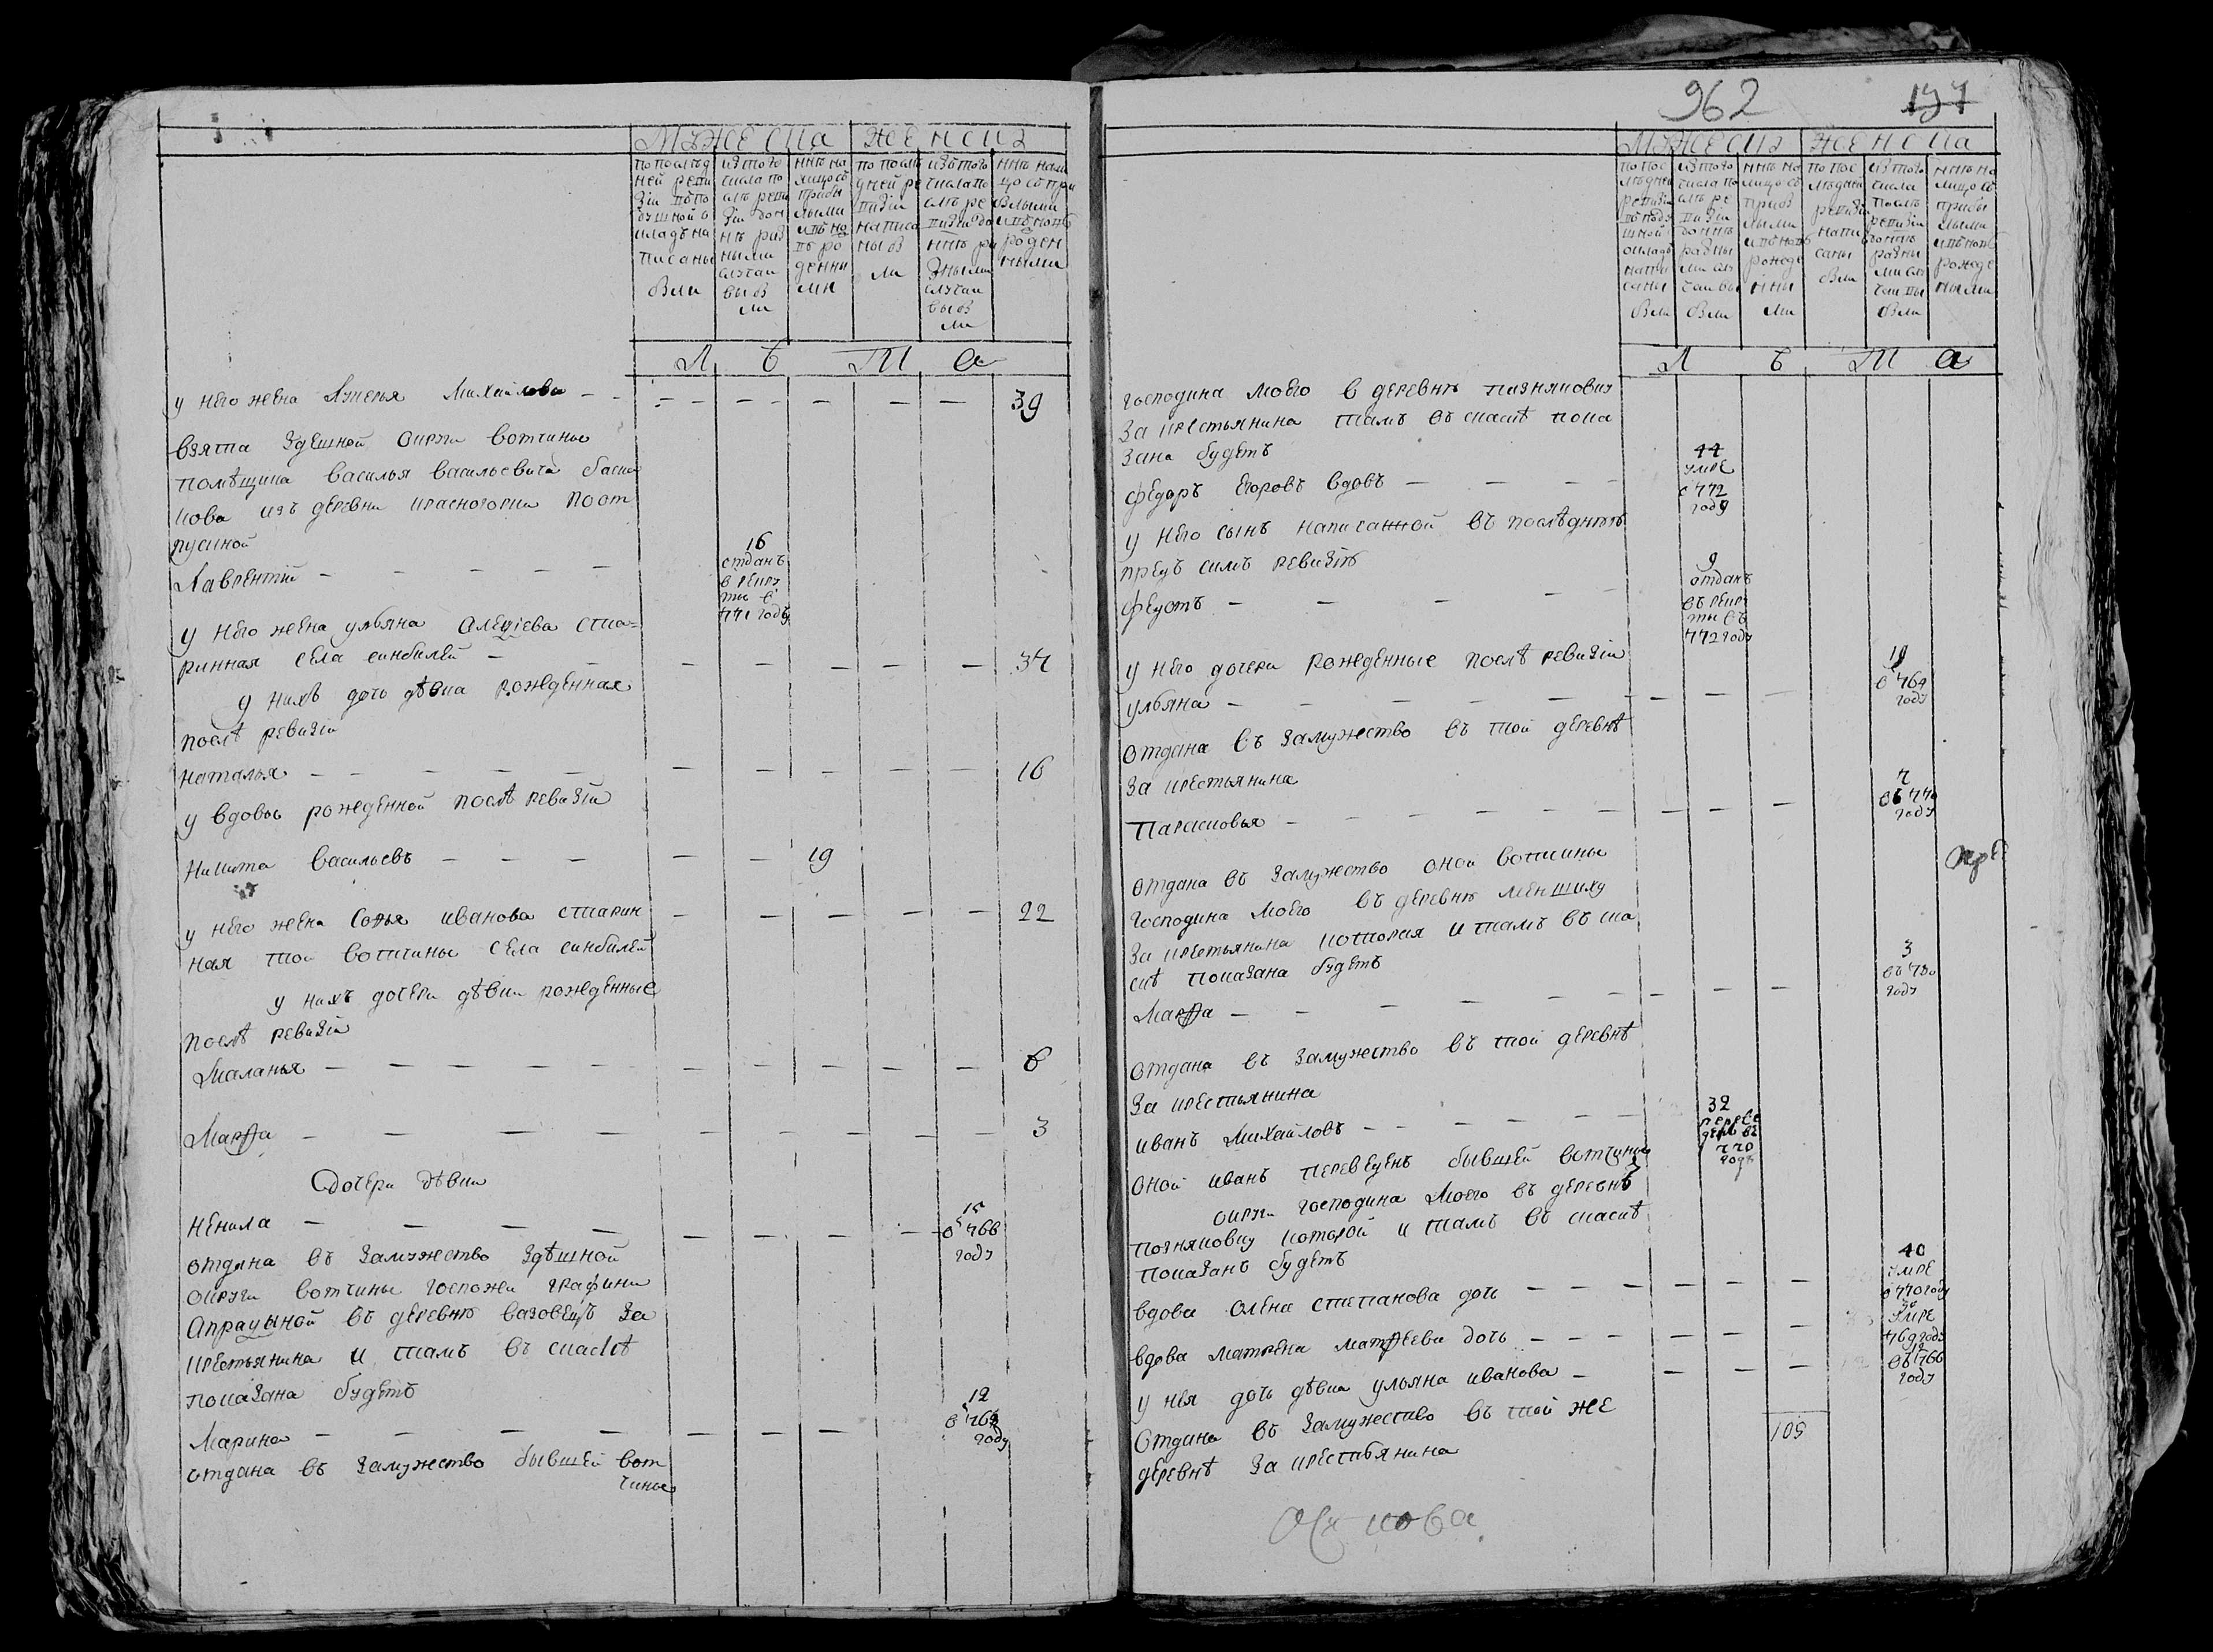 Мужеска Женска
по послед ней ревизии въ подушной окладъ написаны были
изъ того числа после ревизіи до нне разными случаи выбыли
нне на лицо съ прибылыми и въ новь рожденными
по последней ревизіи написаны были
изъ того числа после ревизіи до нне разными случаи выбыли
нне на лицо съ прибылыми и въ новь рожденными
Л Ѣ Т А
у него жена Лукерья Михайлова – – 39
взята здешной округи вотчины
помѣщика василья васильевича баска
кова изъ деревни красногорки по от
пускной
Лаврентій – – – – – 16
отданъ
в рекру
ты в
771 году
у него жена ульяна алексіева ста=
ринная села синбилей – – – 34
у нихъ дочь дѣвка рожденная
послѣ ревизіи
наталья – – – – – 16
у вдовы рожденной послѣ ревизіи
Никита васильевъ – – – 19
у него жена Софья иванова старин 22
ная той вотчины села синбилей
у нихъ дочери дѣвки рожденные
послѣ ревизіи
Маланья – – – – – 6
Марфа – – – – 3
Дочери дѣвки
Ненила – – – – 15
в 766
году
отдана въ замужество здѣшной
округи вотчины госпожи графини
Апраксиной въ деревню вазовецъ за
крестьянина и тамъ въ сказкѣ
показана будетъ
Марина – – – – 12
в 769
году
отдана въ замужество бывшей вот
чины
962 197
Мужеска Женска
по последней ревизіи въ подушной окладъ написаны были
изъ того числа после ревизіи до нне разными случаи выбыли
нне на лицо съ прибылыми и въ новь рожденными
по последней ревизіи написаны были
изъ того числа после ревизіи до нне разными случаи выбыли
нне на лицо съ прибылыми и въ новь рожденными
Л Ѣ Т А
господина моего в деревню познякову
за крестьянина тамъ въ сказкѣ пока
зана будетъ
федоръ егоровъ вдовъ – – – 44
умре
в 772
году
у него сынъ написанной въ последнюю
предъ симъ ревизію
федотъ – – – – 9
отданъ
въ рекру
ты въ
772 году
у него дочери рожденные послѣ ревизіи
ульяна – – – – 19
в 764
году
отдана въ замужество въ той деревнѣ
за крестьянина
Парасковья – – – – 7
въ 770
году
отдана въ замужество оной вотчины
господина моего въ деревню меншиху
за крестьянина которая и тамъ въ ска
скѣ показана будетъ
Марфа – – – – 3
въ 780
году
отдана въ замужество въ той деревнѣ
за крестьянина
иванъ Михайловъ – – – – 32
переве
денъ въ
770
году
оной иванъ переведенъ бывшей вотчины
округи господина моего въ деревню
познякову которой и тамъ въ сказкѣ
показанъ будетъ
вдова олена степанова дочь – – – 40
умре
в 770 году
вдова матрена матфеева дочь – – – 30
умре
769 году
у нея дочь дѣвка ульяна иванова – 12
въ 766
году
отдана въ замужество въ той же
деревнѣ за крестьянина
105